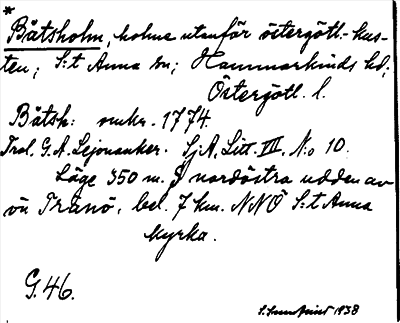 *
Båtsholm, holme utanför östergötl.-kus-
ten; S:t Anna sn; Hammarkinds hd;
Östergötl. l.
Båtsh: omkr. 1774.
Trol. G. A. Lejonanker. Sj.A, Litt. III. N:o 10.
Läge 350 m. O nordöstra udden av
ön Tränö, bel. 7 km. NNÖ S:t Anna
kyrka.
G. 46.
1938